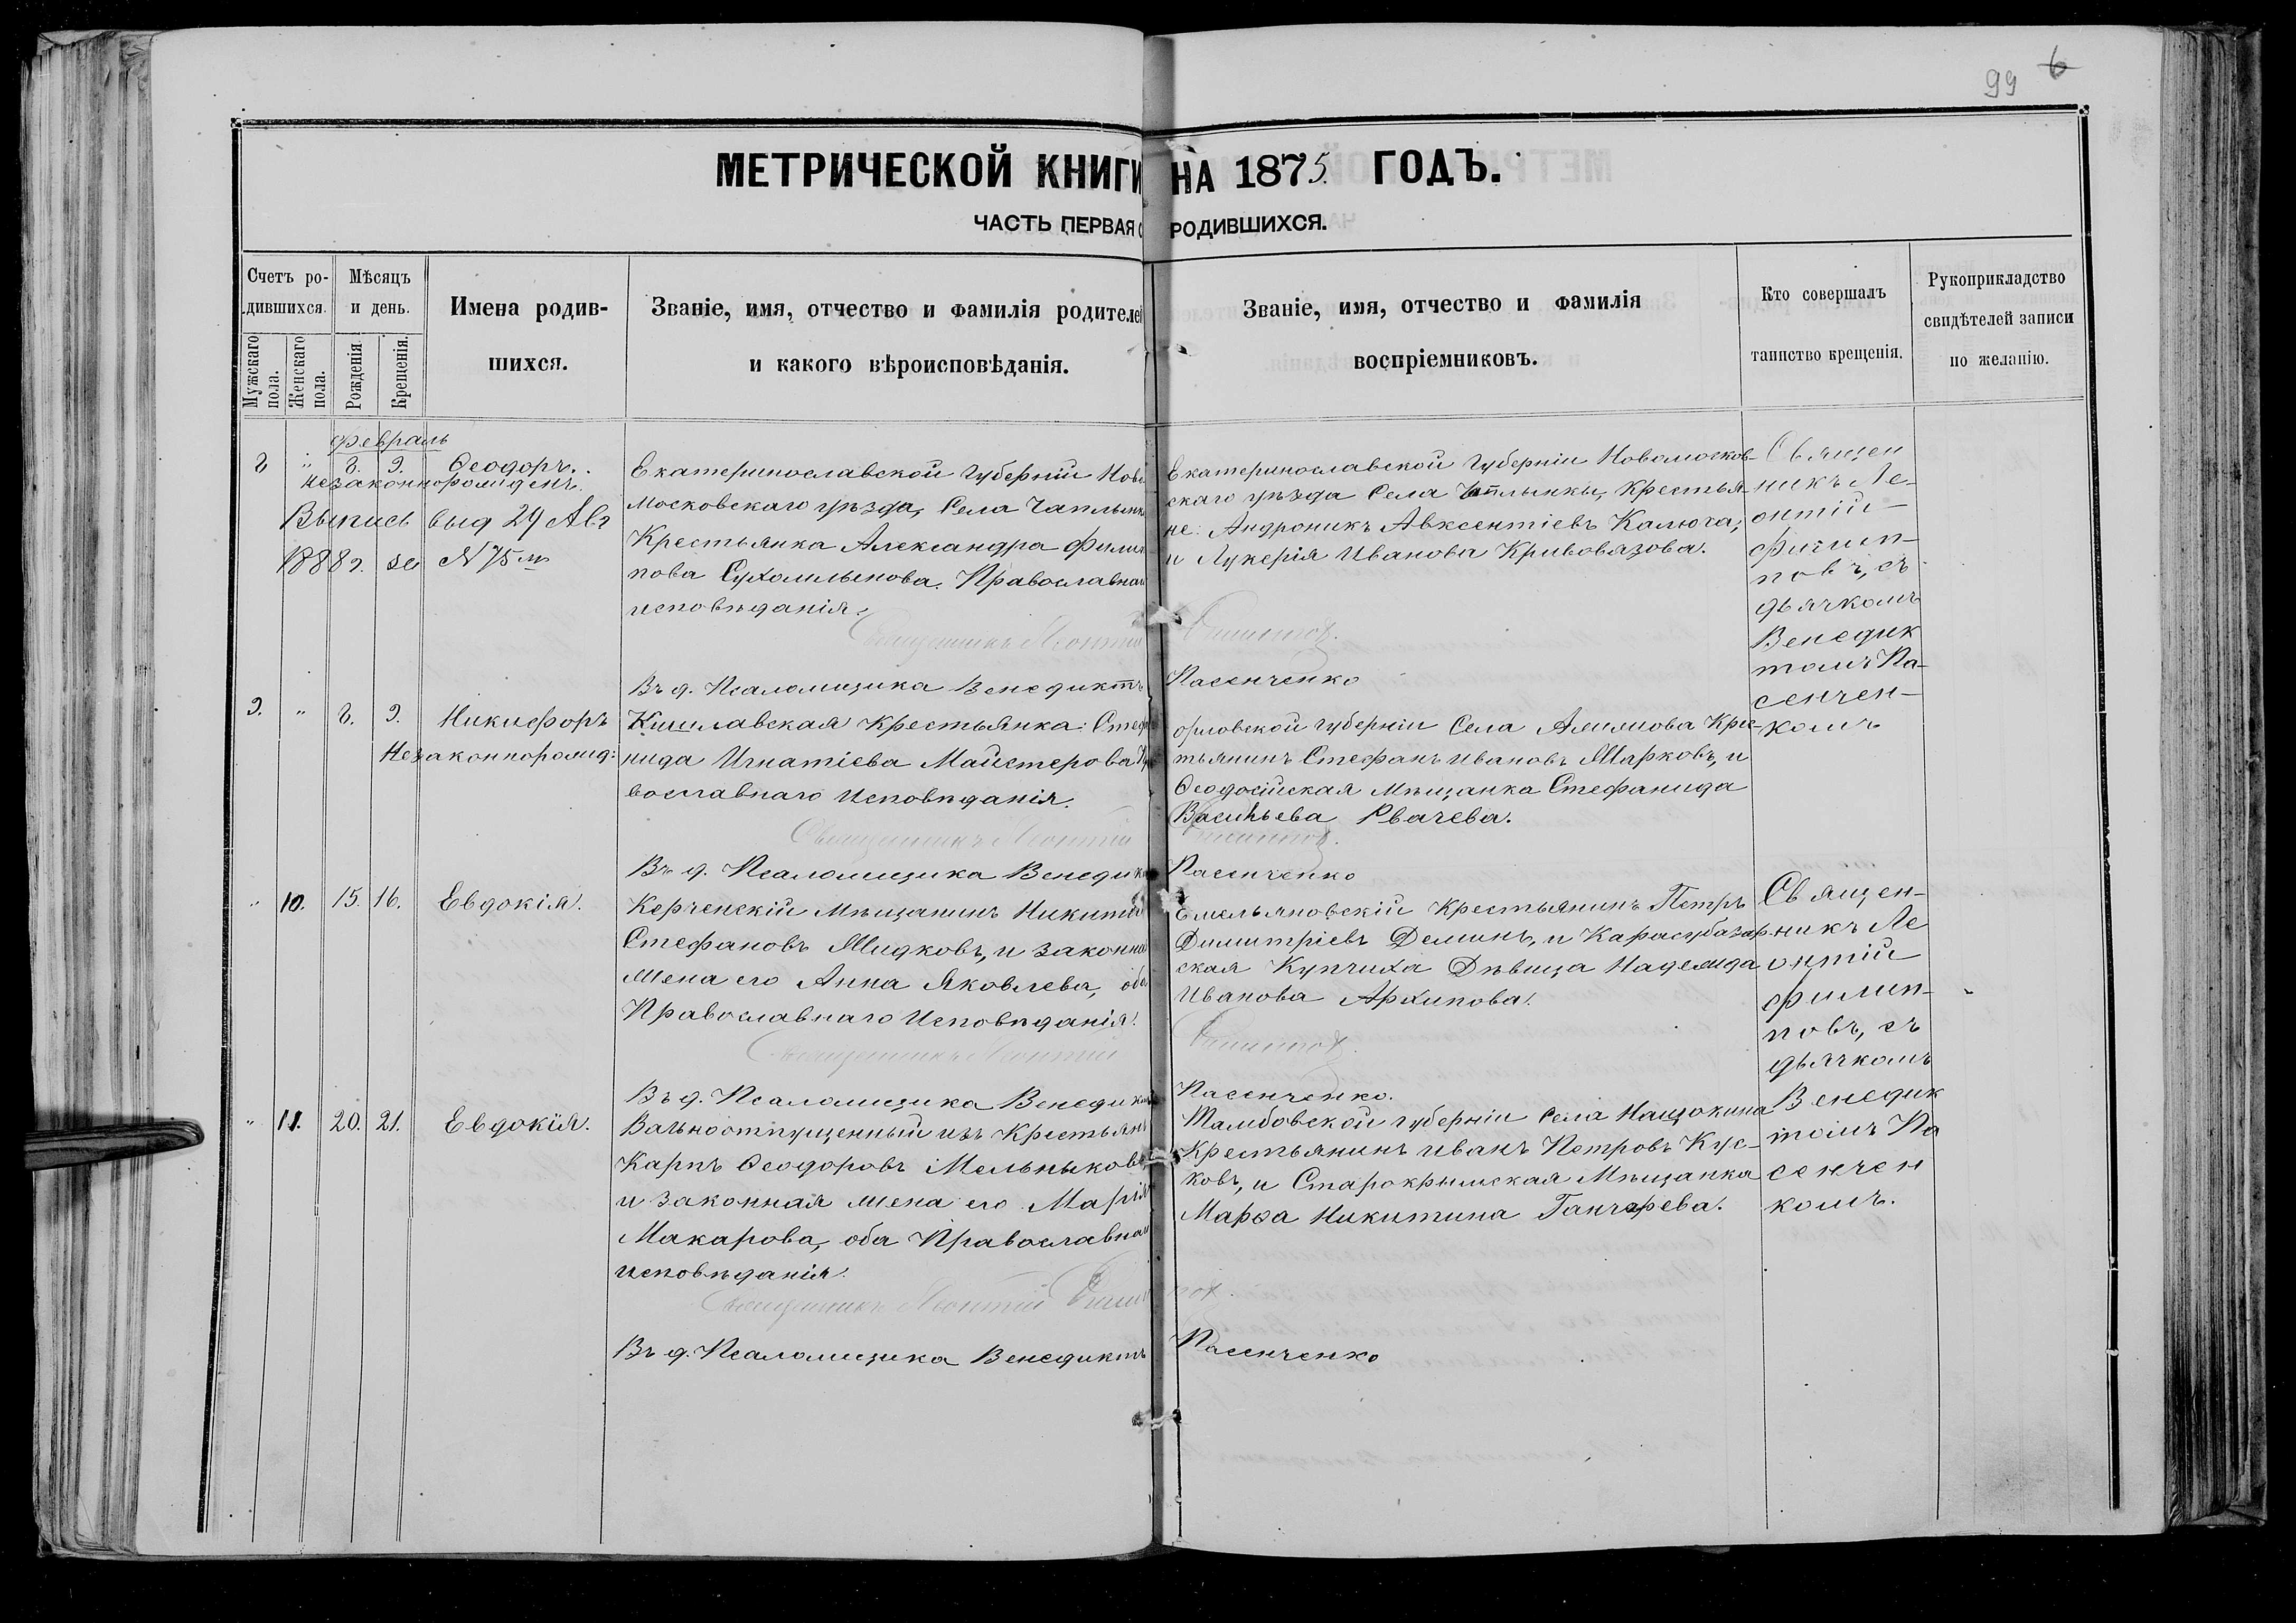 99 6
МЕТРИЧЕСКОЙ КНИГИ НА 1875 ГОДЪ.
ЧАСТЬ ПЕРВАЯ О РОДИВШИХСЯ.
Счетъ ро-
дившихся.
Мужскаго пола.
Женскаго пола.
Мѣсяцъ
и день.
Рожденія.
Крещенія.
Имена родив-
шихся.
Званіе, имя, отчество и фамилія родителей
и какого вѣроисповѣданія.
Званіе, имя, отчество и фамилія
воспріемниковъ.
Кто совершалъ
таинство крещенія.
Рукоприкладство
свидѣтелей записи
по желанію.
февраль
8 " 8. 9. Ѳеодоръ.
незаконнорожденъ
Выпись выд 29 Авг
1888 г. за N 75 м
Екатеринославской губерніи Ново
московскаго уѣзда, Села Чаплынк
Крестьянка Александра Филип
пова Сухомлынова. Православнаг
исповѣданія.
Священникъ Леонтій Филиппов.
Въ д. Псаломщика Венедиктъ Пасенченко
Екатеринославской губерніи Новомосков-
скаго уѣзда Села Чаплынки, Крестья-
не: Андроникъ Авксентіевъ Калюга;
и Лукерія Иванова Кривовязова.
Священ
никъ Ле-
онтій
Филип-
повъ, съ
дьячкомъ
Венедик
томъ Па-
сенчен-
комъ
9. " 8. 9. Никифоръ
Незаконнорожд:
Кишлавская Крестьянка: Стеф
нида Игнатіева Майстерова Пра
вославнаго Исповѣданія.
Священникъ Леонтій Филиппов.
Въ д. Псаломщика Венедик Пасенченко
орловской губерніи Села Алимова Крес-
тьянинъ Стефанъ Ивановъ Жарковъ, и
Ѳеодосійская Мѣщанка Стефанида
Васильева Рвачева.
" 10. 15. 16. Евдокія.
Керченскій мѣщанинъ Никита
Стефановъ Жидковъ, и законна
жена его Анна Яковлева, оба
Православнаго Исповѣданія.
Священникъ Леонтій Филиппов.
Въ д. Псаломщика Венедик Пасенченко.
Емельяновскій Крестьянинъ Петръ
Димитріевъ Деминъ, и Карасубазар-
ская Купчиха Дѣвица Надежда
Иванова Архипова.
Священ-
никъ Ле
онтій
Филип-
повъ, съ
дьячкомъ
Венедик
томъ Па
сенчен
комъ.
" 11. 20. 21. Евдокія.
Вальноотпущенный изъ Крестьянъ
Карпъ Ѳеодоровъ Мельныковъ
и законная жена его Марія
Макарова, оба Православнаг
исповѣданія.
Священникъ Леонтій Филиппов.
Въ д. Псаломщика Венедиктъ Пасенченко
Тамбовской губерніи Села Нащокина
Крестьянинъ Иванъ Петровъ Кус-
ковъ, и Старокрымская Мѣщанка
Марѳа Никитина Ганчарева.